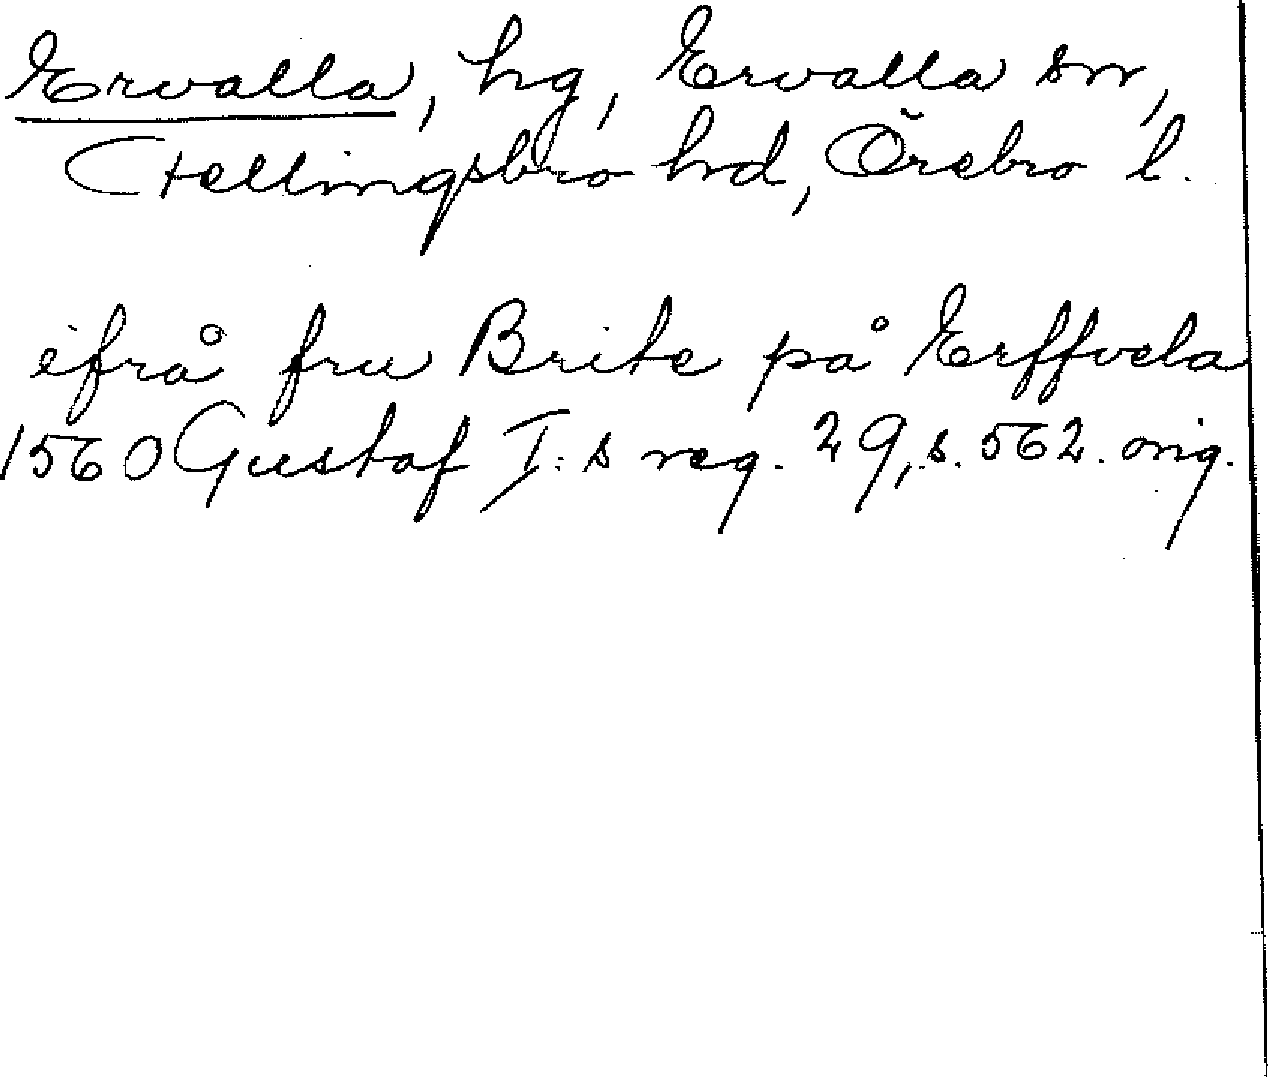 Ervalla, hg, Ervalla sn,
Fellingsbro hd, Örebro l.
ifrå fru Brite på Erffvela
1560 Gustaf I:s reg. 29, s. 562. orig.